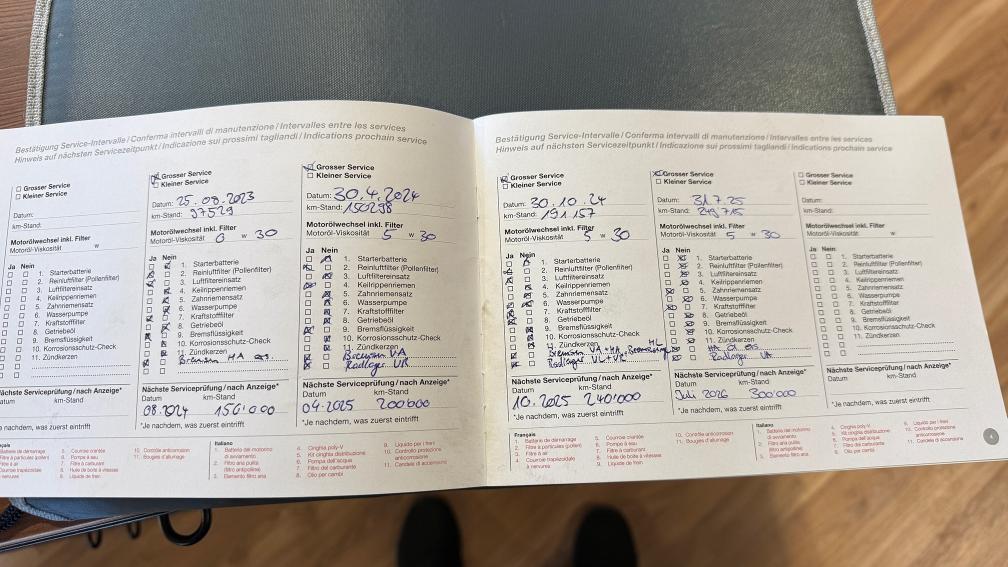 Bestätigung Service-Intervalle / Conferma intervalli di manutenzione / Intervalles entre les services
Hinweis auf nächsten Servicezeitpunkt / Indicazione sui prossimi tagliandi / Indications prochain service
Grosser Service
Kleiner Service
Datum:
km-Stand:
Motorölwechsel inkl. Filter
Motoröl-Viskosität w
Ja Nein
1. Starterbatterie
2. Reinluftfilter (Pollenfilter)
3. Luftfiltereinsatz
4. Keilrippenriemen
5. Zahnriemensatz
6. Wasserpumpe
7. Kraftstofffilter
8. Getriebeöl
9. Bremsflüssigkeit
10. Korrosionsschutz-Check
11. Zündkerzen
Nächste Serviceprüfung / nach Anzeige*
Datum km-Stand
*Je nachdem, was zuerst eintrifft
Grosser Service
Kleiner Service
Datum: 25.08.2023
km-Stand: 97529
Motorölwechsel inkl. Filter
Motoröl-Viskosität 0 w 30
Ja Nein
1. Starterbatterie
2. Reinluftfilter (Pollenfilter)
3. Luftfiltereinsatz
4. Keilrippenriemen
5. Zahnriemensatz
6. Wasserpumpe
7. Kraftstofffilter
8. Getriebeöl
9. Bremsflüssigkeit
10. Korrosionsschutz-Check
11. Zündkerzen
HA
Nächste Serviceprüfung / nach Anzeige*
Datum km-Stand
08.2024 156'000
*Je nachdem, was zuerst eintrifft
Grosser Service
Kleiner Service
Datum: 30.4.2024
km-Stand: 150298
Motorölwechsel inkl. Filter
Motoröl-Viskosität 5 w 30
Ja Nein
1. Starterbatterie
2. Reinluftfilter (Pollenfilter)
3. Luftfiltereinsatz
4. Keilrippenriemen
5. Zahnriemensatz
6. Wasserpumpe
7. Kraftstofffilter
8. Getriebeöl
9. Bremsflüssigkeit
10. Korrosionsschutz-Check
11. Zündkerzen
VA
Radlager VR
Nächste Serviceprüfung / nach Anzeige*
Datum km-Stand
04.2025 200'000
*Je nachdem, was zuerst eintrifft
Français
1. Batterie de démarrage
2. Filtre à particules (pollen)
3. Filtre à air
4. Courroie trapézoïdale à nervures
5. Courroie crantée
6. Pompe à eau
7. Filtre à carburant
8. Huile de boîte à vitesses
9. Liquide de frein
10. Contrôle anticorrosion
11. Bougies d'allumage
Italiano
1. Batteria del motorino di avviamento
2. Filtro aria pulita (filtro antipolline)
3. Elemento filtro aria
4. Cinghia poly-V
5. Kit cinghia distribuzione
6. Pompa dell'acqua
7. Filtro del carburante
8. Olio per cambi
9. Liquido per i freni
10. Controllo protezione anticorrosione
11. Candele di accensione
Bestätigung Service-Intervalle / Conferma intervalli di manutenzione / Intervalles entre les services
Hinweis auf nächsten Servicezeitpunkt / Indicazione sui prossimi tagliandi / Indications prochain service
Grosser Service
Kleiner Service
Datum: 30.10.24
km-Stand: 191.157
Motorölwechsel inkl. Filter
Motoröl-Viskosität 5 w 30
Ja Nein
1. Starterbatterie
2. Reinluftfilter (Pollenfilter)
3. Luftfiltereinsatz
4. Keilrippenriemen
5. Zahnriemensatz
6. Wasserpumpe
7. Kraftstofffilter
8. Getriebeöl
9. Bremsflüssigkeit
10. Korrosionsschutz-Check
11. Zündkerzen
VA + HA HL
Radlager VL + VR
Nächste Serviceprüfung / nach Anzeige*
Datum km-Stand
10.2025 240'000
*Je nachdem, was zuerst eintrifft
Grosser Service
Kleiner Service
Datum: 31.7.25
km-Stand: 249715
Motorölwechsel inkl. Filter
Motoröl-Viskosität 5 w 30
Ja Nein
1. Starterbatterie
2. Reinluftfilter (Pollenfilter)
3. Luftfiltereinsatz
4. Keilrippenriemen
5. Zahnriemensatz
6. Wasserpumpe
7. Kraftstofffilter
8. Getriebeöl
9. Bremsflüssigkeit
10. Korrosionsschutz-Check
11. Zündkerzen
HA
Radlager VA
Nächste Serviceprüfung / nach Anzeige*
Datum km-Stand
Juli 2026 300'000
*Je nachdem, was zuerst eintrifft
Grosser Service
Kleiner Service
Datum:
km-Stand:
Motorölwechsel inkl. Filter
Motoröl-Viskosität w
Ja Nein
1. Starterbatterie
2. Reinluftfilter (Pollenfilter)
3. Luftfiltereinsatz
4. Keilrippenriemen
5. Zahnriemensatz
6. Wasserpumpe
7. Kraftstofffilter
8. Getriebeöl
9. Bremsflüssigkeit
10. Korrosionsschutz-Check
11. Zündkerzen
Nächste Serviceprüfung / nach Anzeige*
Datum km-Stand
*Je nachdem, was zuerst eintrifft
Français
1. Batterie de démarrage
2. Filtre à particules (pollen)
3. Filtre à air
4. Courroie trapézoïdale à nervures
5. Courroie crantée
6. Pompe à eau
7. Filtre à carburant
8. Huile de boîte à vitesses
9. Liquide de frein
10. Contrôle anticorrosion
11. Bougies d'allumage
Italiano
1. Batteria del motorino di avviamento
2. Filtro aria pulita (filtro antipolline)
3. Elemento filtro aria
4. Cinghia poly-V
5. Kit cinghia distribuzione
6. Pompa dell'acqua
7. Filtro del carburante
8. Olio per cambi
9. Liquido per i freni
10. Controllo protezione anticorrosione
11. Candele di accensione